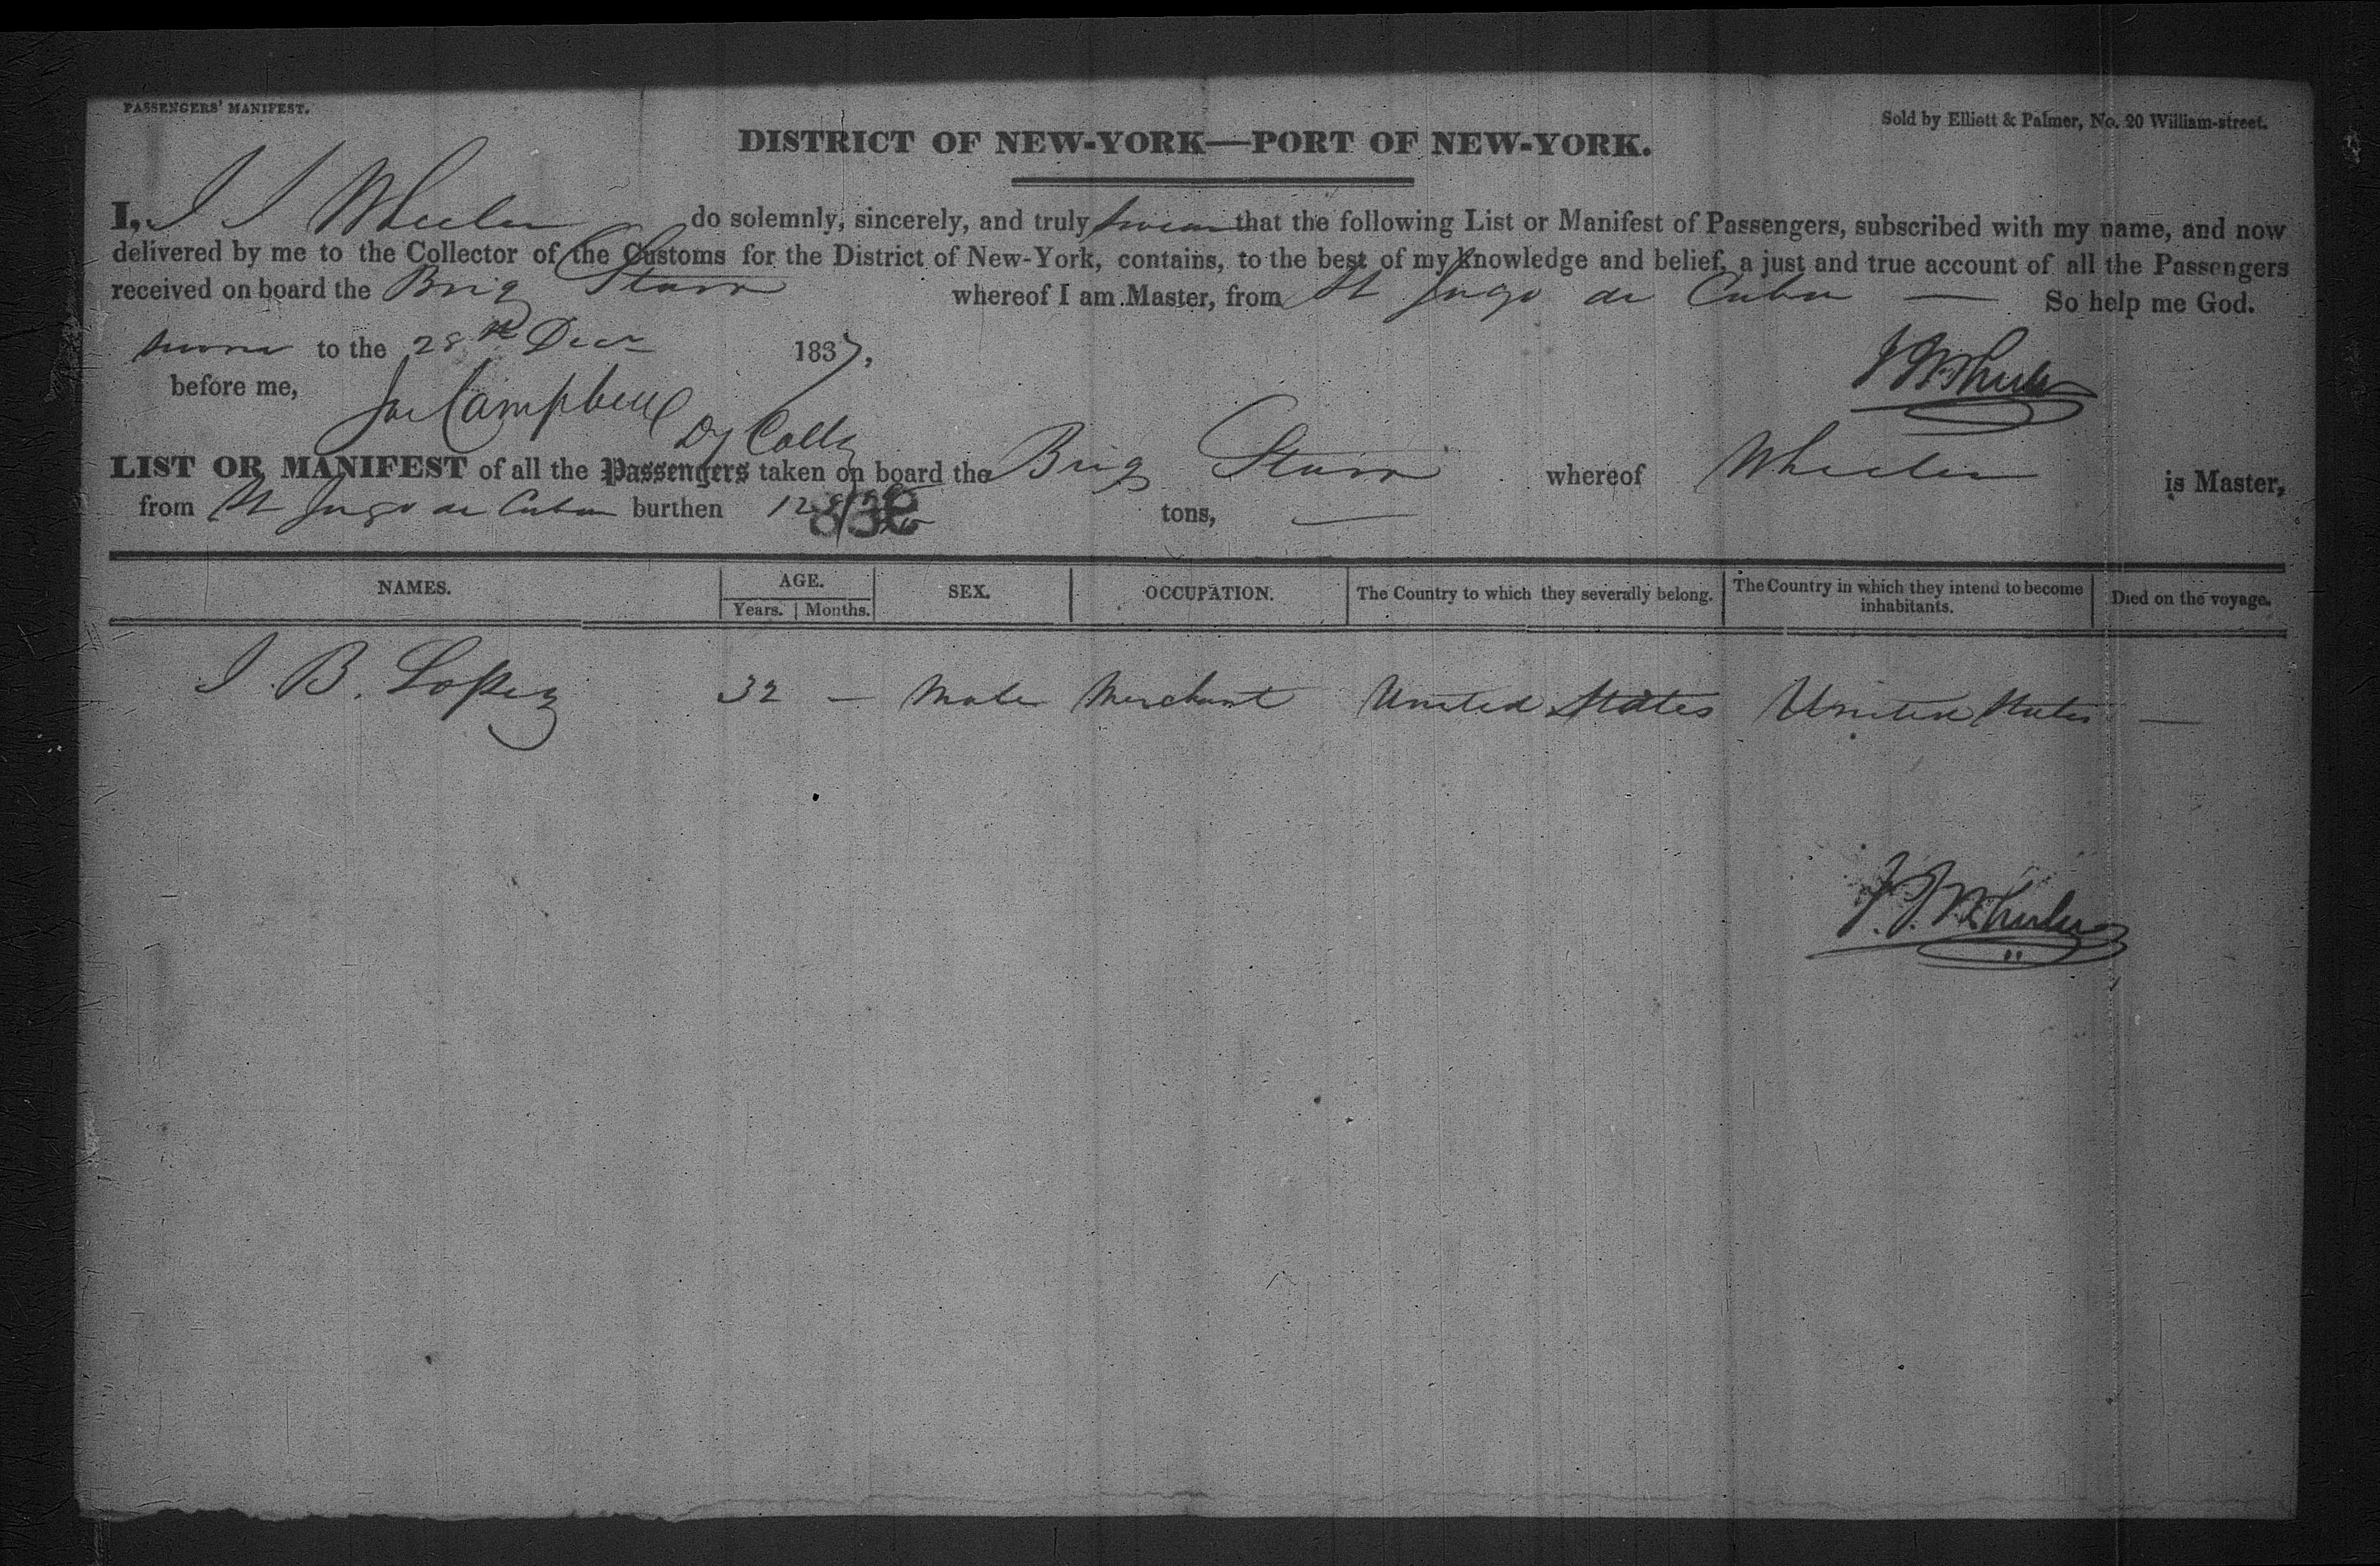 PASSENGERS' MANIFEST.
Sold by Elliott & Palmer, No. 20 William-street.
DISTRICT OF NEW-YORK—PORT OF NEW-YORK.
I, J J Wheeler do solemnly, sincerely, and truly swear that the following List or Manifest of Passengers, subscribed with my name, and now
delivered by me to the Collector of the Customs for the District of New-York, contains, to the best of my knowledge and belief, a just and true account of all the Passengers
received on board the Brig Starr whereof I am Master, from St Jago de Cuba — So help me God.
sworn to the 28th Decr 1837,
J J Wheeler
before me,
Campbell
Dy Colly
LIST OR MANIFEST of all the Passengers taken on board the Brig Starr whereof Wheeler is Master,
from St Jago de Cuba burthen tons, —
NAMES. AGE. SEX. OCCUPATION. The Country to which they severally belong. The Country in which they intend to become inhabitants. Died on the voyage.
Years. Months.
J. B. Lopez 32 — Male Merchant United States United States —
J. J. Wheeler